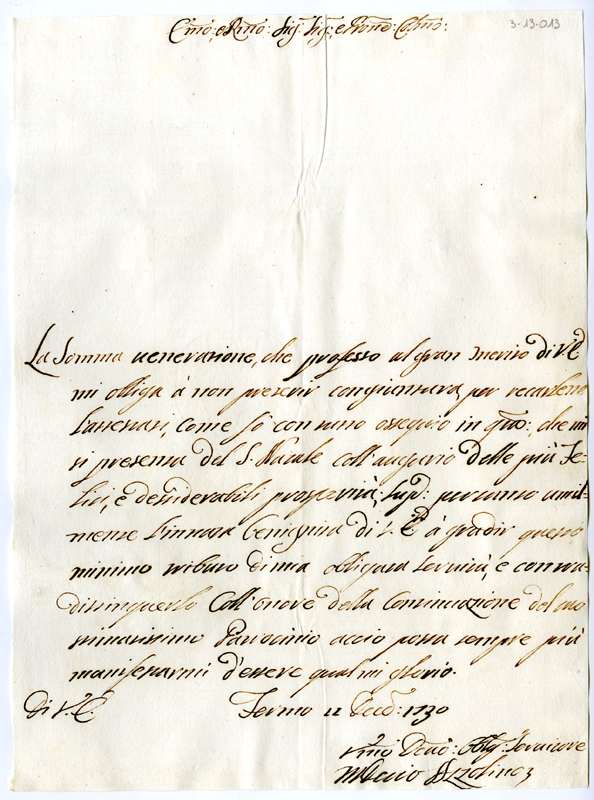 3-13-013
Em̃o: e Rm̃o: Sig: Sig: e Pron̄o: Col̄mo:
La Somma uenerazione, che professo al gran merito di V. E
mi obliga à non preterir congiuntura, per recarlene
l'attestati, come fò con tutto ossequio in q̃to: che mi
si presenta del S. Natale coll'augurio delle più Fe-
lici, e dessiderabili prosperità; Sup: pertanto umil-
mente l'innata benignità di V. E à gradir questo
minimo tributo di mia obligata seruitù, e contra-
distinguerlo Coll'onore della Continuazione del suo
stimatissimo Patrocinio acciò possa sempre più
manifestarmi d'essere qual mi glorio.
Di V. E. Fermo 22 Xcēb: 1730
Vm̃o Deuō: Oblig: Seruitore
Decio Azzolino